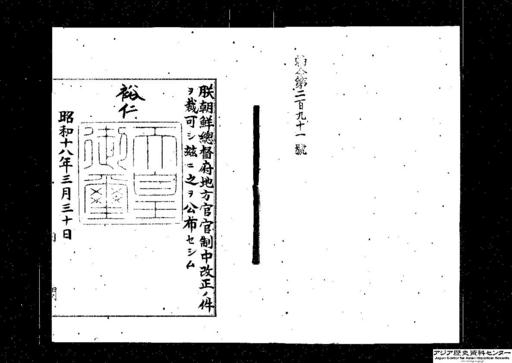 勅令第二百九十一號
朕朝鮮總督府地方官官制中改正ノ件
ヲ裁可シ玆ニ之ヲ公布セシム
裕仁
天皇御璽
昭和十八年三月三十日
アジア歴史資料センター
Japan Center for Asian Historical Records